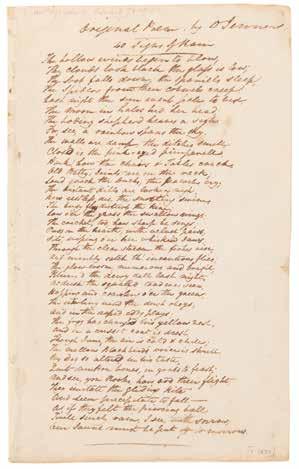 Original Poem, by D Jenner
40 Signs of Rain
The hollow winds begin to blow,
The clouds look black the glass is low,
The soot falls down, the spaniels sleep,
The Spiders from their cobwebs creep
Last night the sun went pale to bed,
The moon in halos hid her head
The boding shepherd heaves a sigh
For see, a rainbow spans the sky.
The walls are damp the ditches smell
Closed is the pink-eyed pimpernel
Hark how the chairs & Tables crack
Old Betty's on the rack,
Loud quack the ducks, the peacocks cry;
The distant hills are looking nigh
How restless are the snorting swine
The busy flies disturb the kine
Low o'er the grass the swallow wings
The cricket too how sharp he sings
Puss on the hearth, with velvet paws
Sits wiping o'er her whiskered jaws.
Through the clear stream the fishes rise
And nimbly catch the incautious flies.
The glow-worms numerous and bright
Illumed the dewy dell last night
At dusk the squalid toad was seen
Hopping and crawling o'er the green
The whirling wind the dust obeys,
And in the eddy plays
The frog has changed his yellow vest,
And in a russet coat is dressed
Though June the air is cold & still
The mellow blackbird's voice is shrill
My dog so altered in his taste
Quits mutton bones, on grass to feast;
And see, yon Rooks, how odd their flight
They imitate the gliding kite
And seem precipitate to fall
As if they felt the piercing ball
'Twill surely rain, I see with sorrow,
Our Jaunt must be put off to morrow.